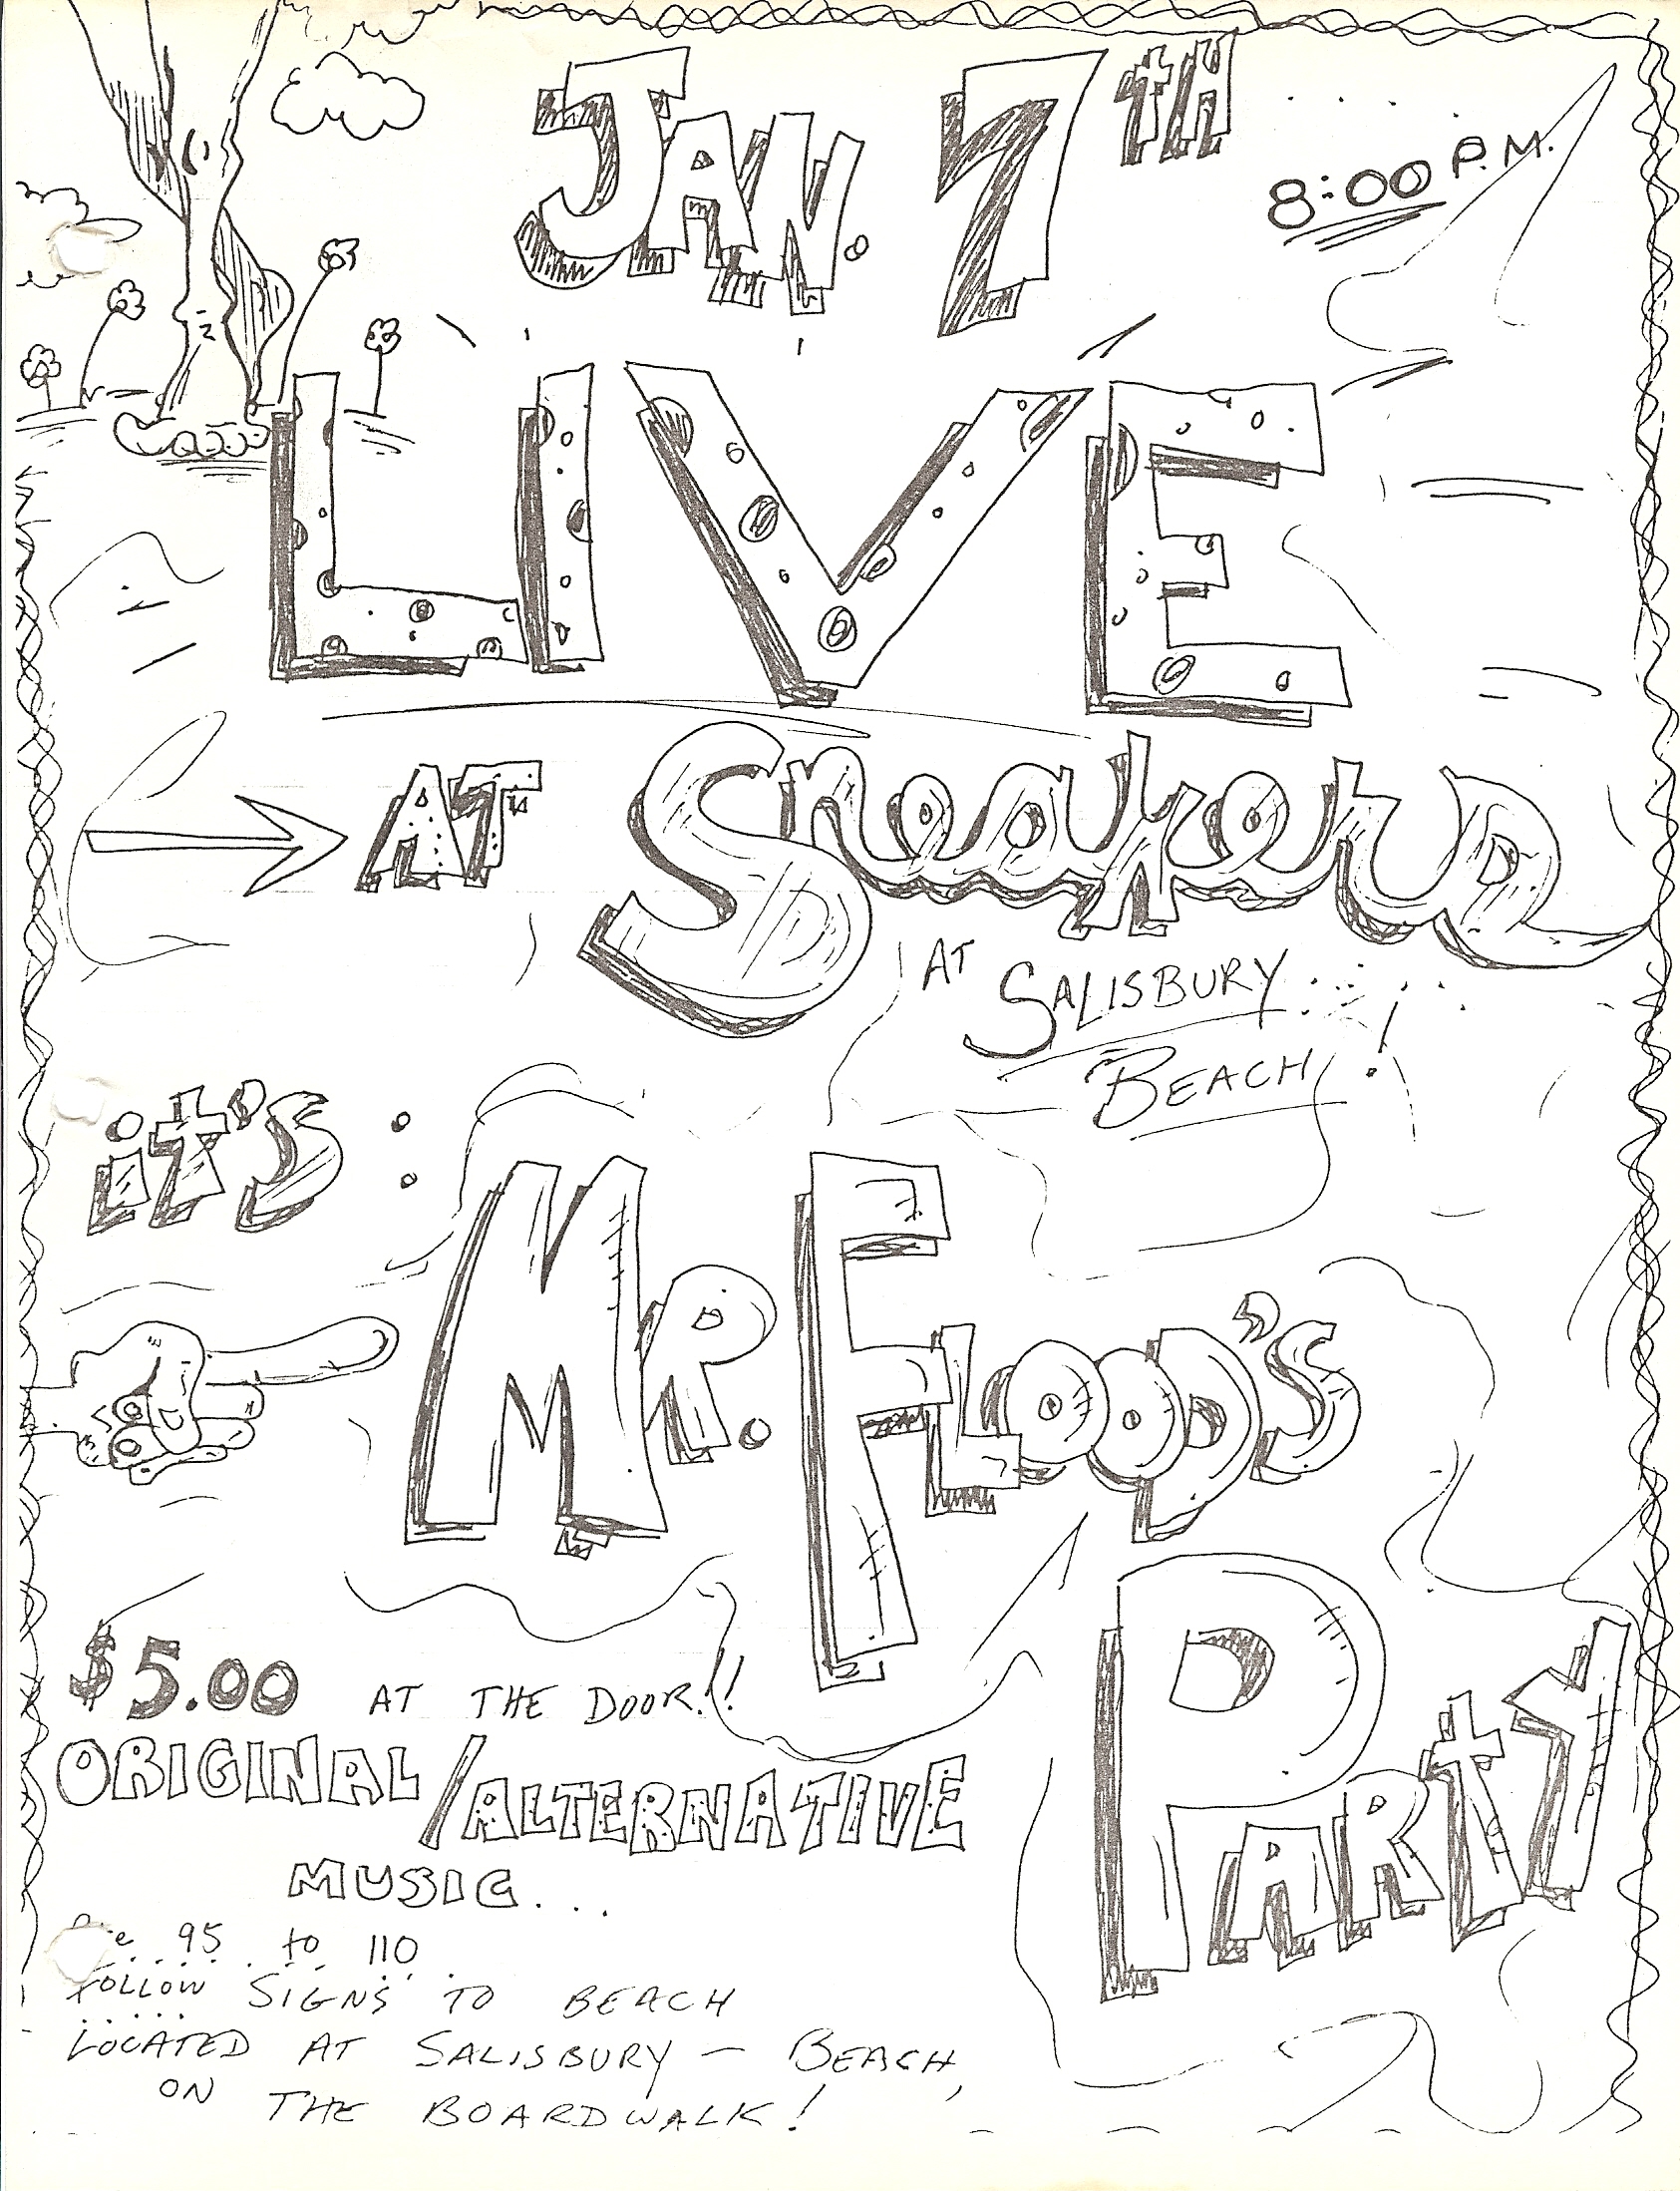 JAN. 7TH
8:00 P.M.
LIVE
AT Sneakers
AT SALISBURY
BEACH!
it's:
MR. FLOOD'S
PARTY
$5.00 AT THE DOOR!!
ORIGINAL/ALTERNATIVE
MUSIC...
95 to 110
FOLLOW SIGNS TO BEACH
LOCATED AT SALISBURY - BEACH,
ON THE BOARDWALK!